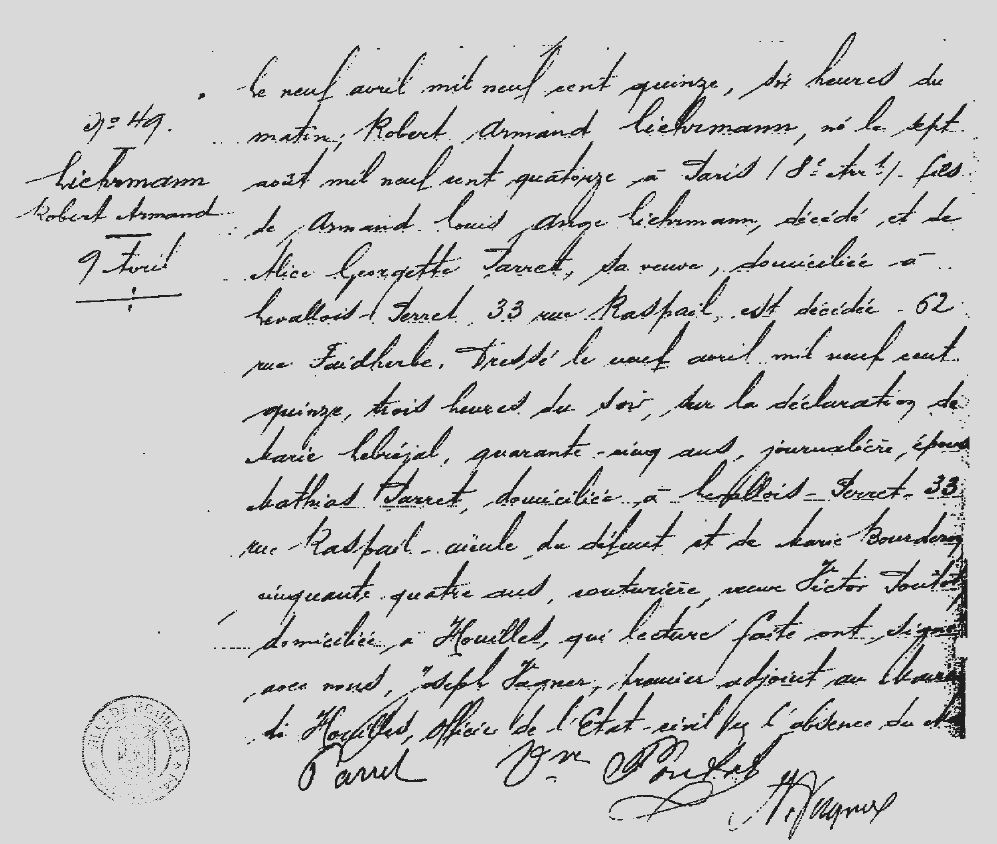 N° 49.
Liehrmann
Robert Armand
9 Avril
Le neuf avril mil neuf cent quinze, six heures du
matin, Robert Armand Liehrmann, né le sept
août mil neuf cent quatorze à Paris (8e Arrt) fils
de Armand Louis Ange Liehrmann, décédé et de
Alice Georgette Parret, sa veuve, domiciliée à
Levallois-Perret, 33 rue Raspail, est décédé 62
rue Faidherbe. Dressé le neuf avril mil neuf cent
quinze, trois heures du soir, sur la déclaration de
Marie, quarante-cinq ans, journalière, épouse
Mathias Parret, domiciliée à Levallois-Perret 33
rue Raspail, aïeule du défunt et de Marie Bourdon
cinquante quatre ans, couturière, veuve Victor
domiciliée à Houilles, qui lecture faite ont signé
avec nous, Joseph Vagner, premier adjoint au Maire
de Houilles, officier de l'Etat-civil en l'absence du
Parret Vve
Vagner